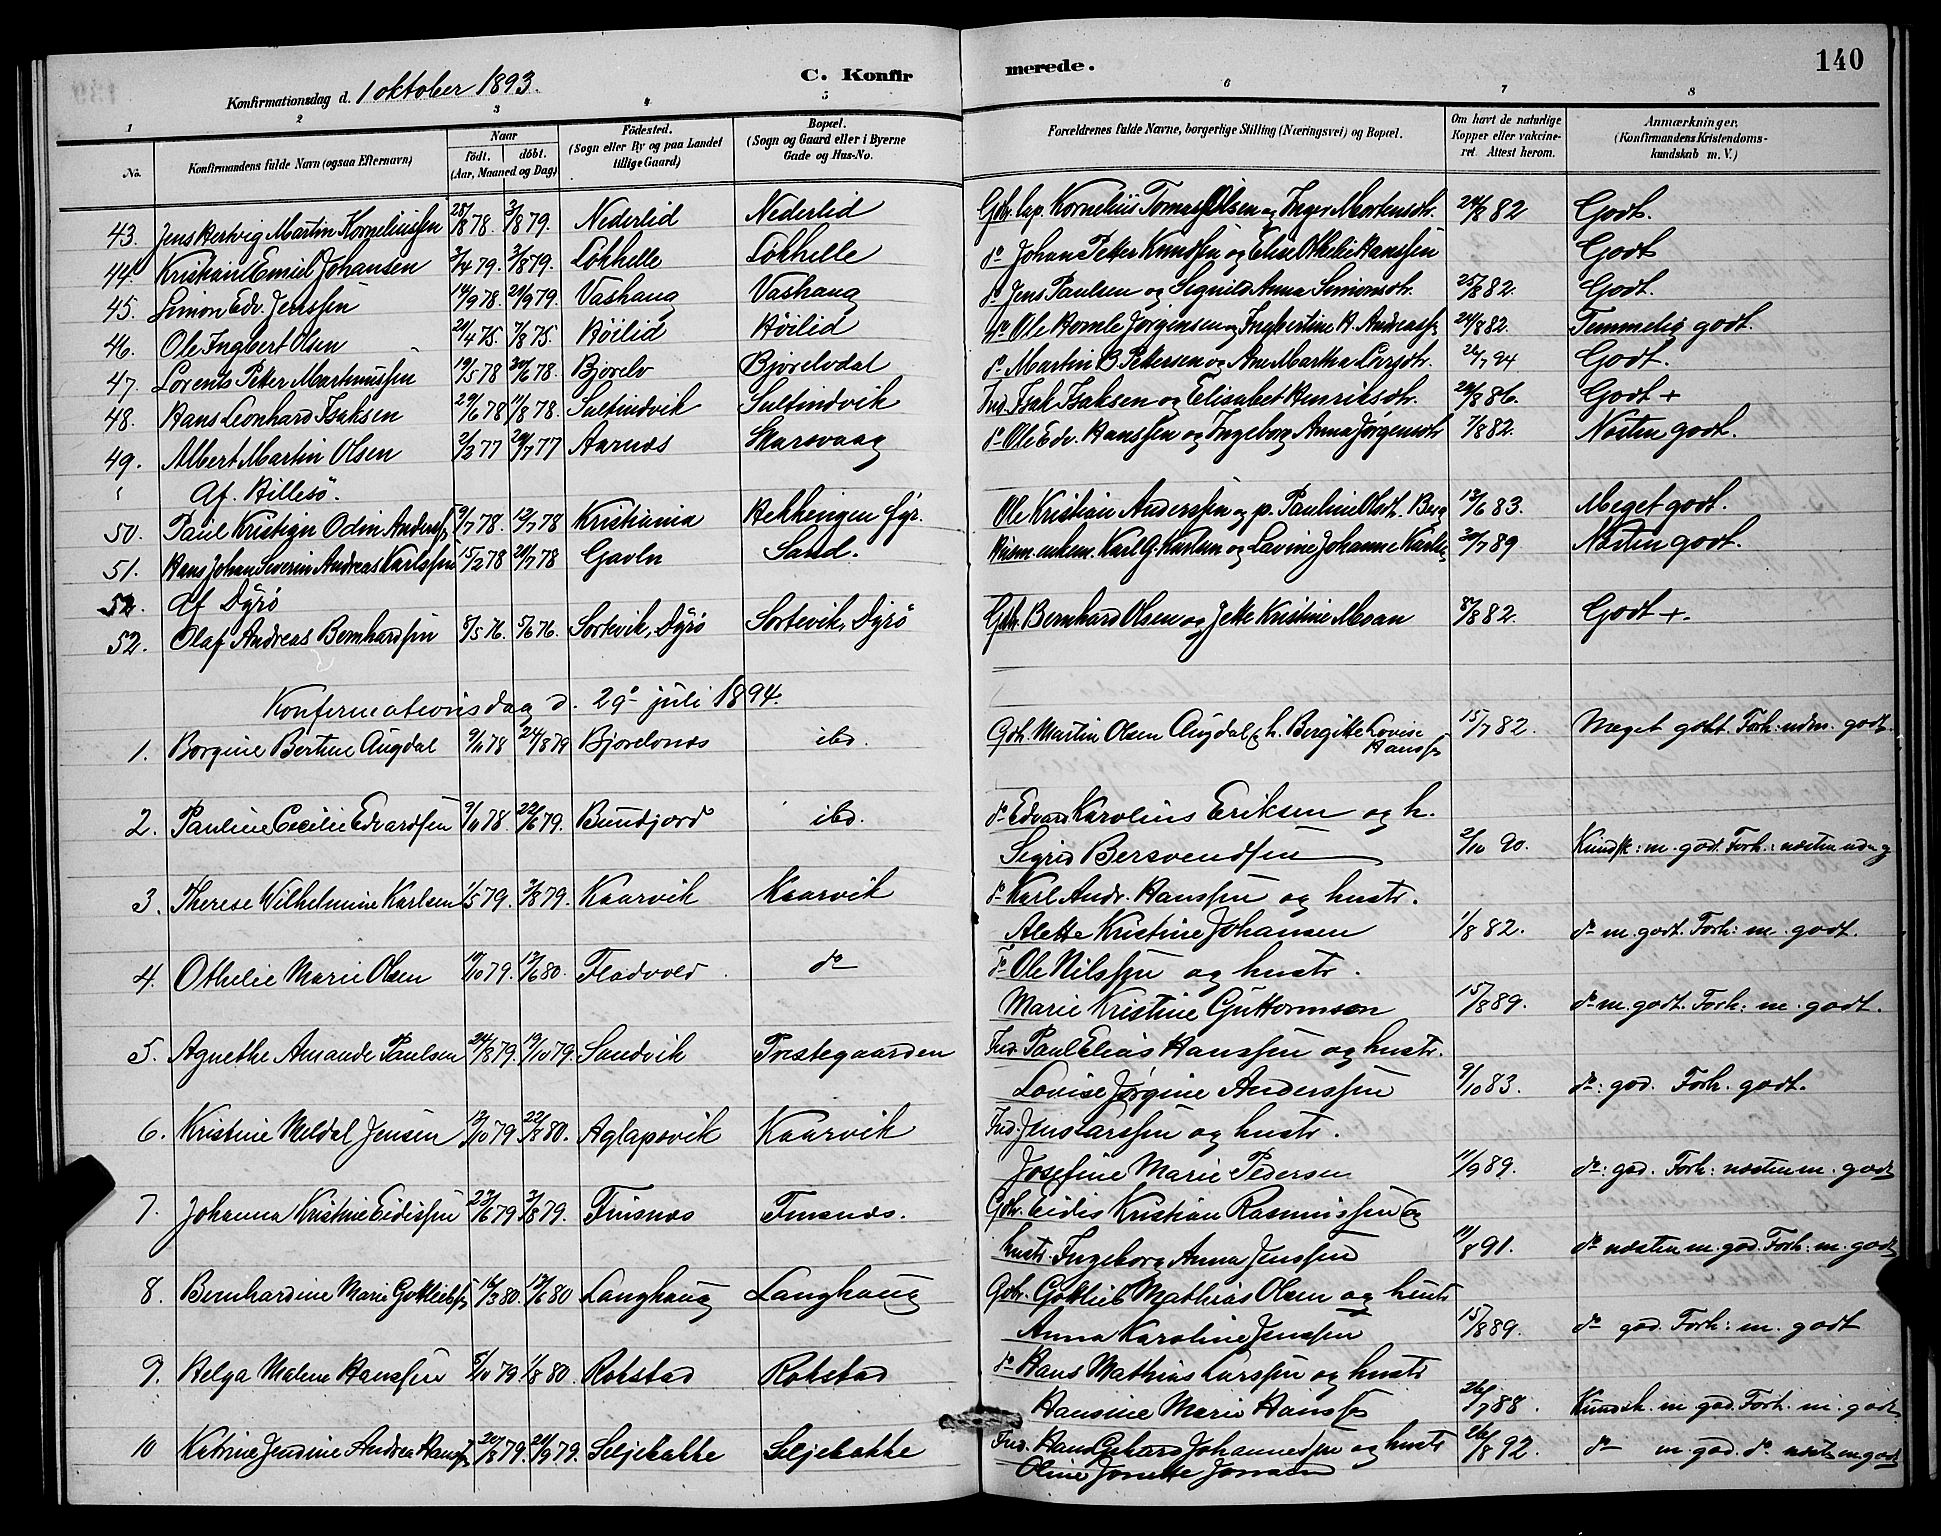 140
C. Konfirmerede.
Konfirmationsdag d. 1 oktober 1893.
1 2 3 4 5 6 7 8
No. Konfirmandens fulde Navn (ogsaa Efternavn) Naar födt. döbt. (Aar, Maaned og Dag) Födested. (Sogn eller By og paa Landet tillige Gaard) Bopæl. (Sogn og Gaard eller i Byerne Gade og Hus-No. Forældrenes fulde Navne, borgerlige Stilling (Næringsvei) og Bopæl. Om havt de naturlige Kopper eller vakcineret. Attest herom. Anmærkninger. (Konfirmandens Kristendomskundskab m. V.)
43. Jens Hertvig Martin Korneliussen 78. 3/8 79. Nederlid Nederlid Gbr. lap. Kornelius Tomas Olsen og Inger Mortensdt. 24/8 82 Godt.
44. Kristian Emiel Johansen 3/4 79. 3/8 79. Løkhelle Løkhelle do Johan Petter Knudsen og Elise Othelie Hanssen Godt
45. Simon Edv. Jenssen 14/9 78. 29/9 79. Vashaug Vashaug do Jens Paulsen og Signild Anna Simonsdt. 25/8 82. Godt.
46. Ole Ingbert Olsen 21/4 75. 7/8 75. Høilid Høilid do Ole Jørgensen og Ingbertine H. Andreasdt. 24/8 82. Temmelig godt.
47. Lorents Petter Martinussen 19/5 78 30/6 78. Bjorelv Bjorelvdal do Martin B. Pettersen og Ane Martha Larsdt. 26/7 94 Godt.
48. Hans Leonhard Isaksen 29/6 78 11/8 78. Sultindvik Sultindvik Ind. Isak Isaksen og Elisabet Henriksdt. 24/8 86. Godt +
49. Albert Martin Olsen 2/2 77 29/7 77 Aarnes Skarsvaag do Ole Edv. Hanssen og Ingeborg Anna Jørgensdt 7/8 82. Næsten godt.
Af. Hillesö.
50. Paul Kristian Odin Anderss. 9/7 78. 12/7 78 Kristiania Hekkingen fyr. Ole Kristian Anderssen og p. Pauline Olsdt. Berg 12/6 83. Meget godt.
51. Hans Johan Severin Andreas Karlssen 15/2 78 20/7 78 Gavln Sand. Karl G. Karlsen og Lavine Johanne 30/7 89 Næsten godt.
52. Af Dyrö
52. Olaf Andreas Bernhardsen 8/5 76. 5/6 76. Sortevik, Dyrö Sortevik, Dyrö Gbr. Bernhard Olsen og Jette Kristine Moan 8/8 82. Godt +.
Konfirmationsdag d. 29de juli 1894.
1. Borgine Bertine Augdal 9/11 78 24/8 79 Bjorelvnes ibd. Gbr. Martin Olsen Augdal & h. Bergitte Lovise Hanss. 15/7 82. Meget godt. Forh. udm. godt.
2. Pauline Cecilie Edvardsen 9/11 78. 22/6 79. Bundjord ibd. do Edvard Karolius Eriksen og h.
Sigrid Bersvendsen 2/10 90. Kundsk: m. god. Forh.: næsten udm g
3. Therese Wilhelmine Karlsen 1/5 79. 3/8 79. Kaarvik Kaarvik do Karl Andr. Hanssen og hustr.
Alette Kristine Johansen 1/8 82. do m. godt. Forh: m. godt.
4. Othelie Marie Olsen 10/10 79. 13/6 80. Fladvold do do Ole Nilssen og hustr.
Marie Kristine Guttormsen 15/8 89. do m. godt. Forh: m. godt.
5. Agnethe Amande Paulsen 24/8 79. 19/10 79. Sandvik Prestegaarden Ind. Paul Elias Hanssen og hustr.
Lovise Jørgine Anderssen 9/10 83. do: god. Forh. godt.
6. Kristine Meldal Jensen 12/10 79 22/8 80. Aglapsvik Kaarvik Ind. Jens Larssen og hustr.
Josefine Marie Pedersen 11/9 89. do: god. Forh: næsten m. godt
7. Johanna Kristine Eidissen 23/6 79 3/8 79. Finsnes Finsnes. Gbr. Eidis Kristian Rasmussen og
hustr. Ingeborg Anna Jenssen 11/8 91. do næsten m. god. Forh: m. godt
8. Bernhardine Marie Gottliebs. 16/3 80. 13/6 80 Langhaug Langhaug Gbr. Gottlieb Mathias Olsen og hustr
Anna Karoline Jenssen 15/8 89. do god. Forh: m. godt
9. Helga Malene Hanssen 8/10 79 1/8 80. Rokstad Rokstad do Hans Mathias Larssen og hustr
Hansine Marie Hanss. 26/7 88. Kundsk. m god. Forh. m. godt
10 Katrine Jendine Andrea Hanss. 20/8 79. 21/9 79. Seljebakke Seljebakke Ind. Hans Gerhard Johannessen og hustr 26/8 92. do m. god. do næsten m. godt
Oline Jonette Jonsen